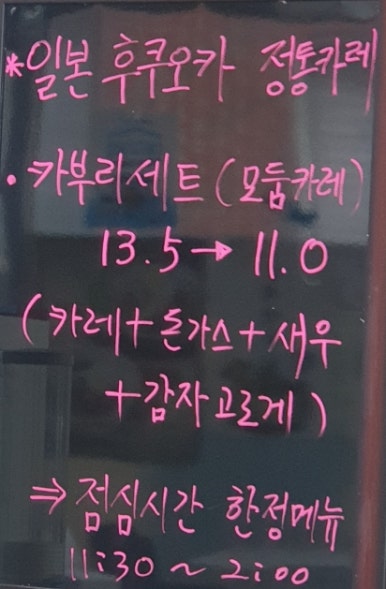 *일본 후쿠오카 정통카레
· 카부리세트(모둠카레)
13.5→11.0
(카레+돈가스+새우
+감자고로게)
⇒점심시간 한정메뉴
11:30 ~ 2:00